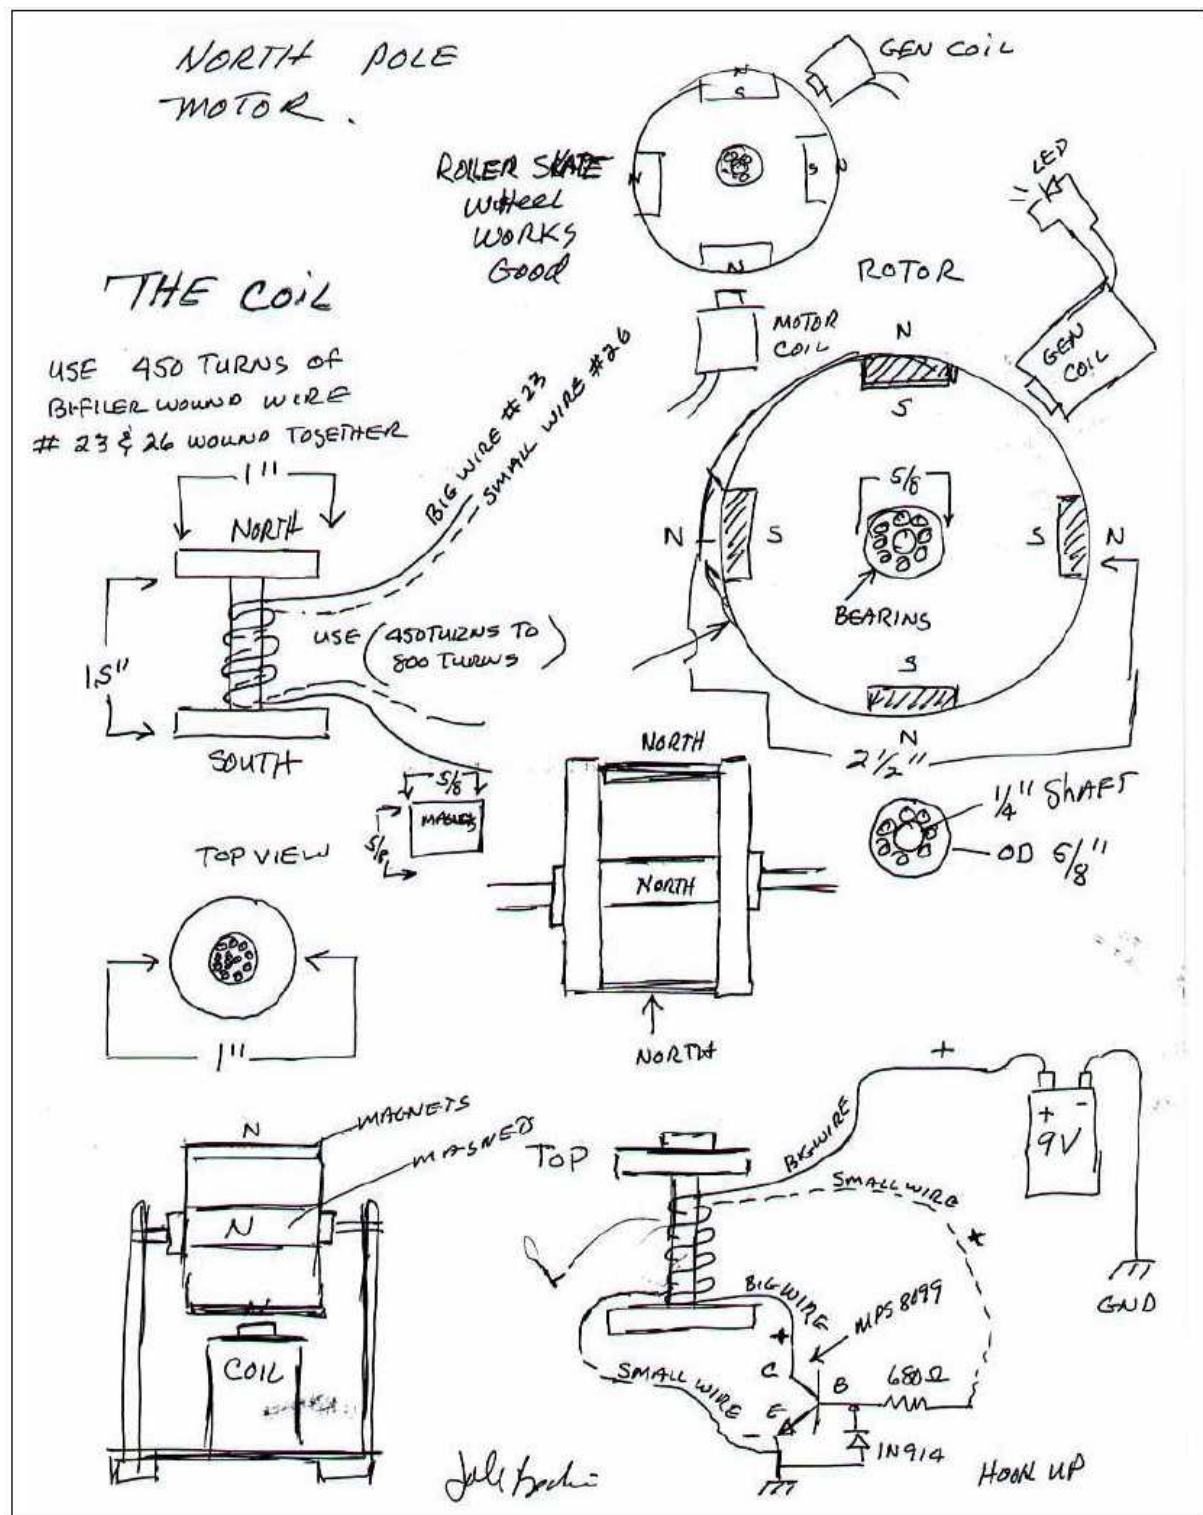 NORTH POLE
MOTOR.
GEN COIL
N
S
N
S
N
N
ROLLER SKATE
WHEEL
WORKS
GOOD
LED
ROTOR
MOTOR
COIL
GEN
COIL
THE COIL
USE 450 TURNS OF
BI-FILER WOUND WIRE
# 23 & 26 WOUND TOGETHER
BIG WIRE #23
SMALL WIRE #26
1"
NORTH
1.5"
USE (450 TURNS TO
800 TURNS)
SOUTH
N
S
N
S
S
N
5/8
BEARING
S
N
2 1/2"
5/8
MAGNETS
5/8
NORTH
NORTH
NORTH
1/4" SHAFT
OD 5/8"
TOP VIEW
1"
MAGNETS
MAGNETS
N
N
N
COIL
TOP
BIG WIRE
+
SMALL WIRE
+ -
9V
GND
BIG WIRE
+
MPS 8099
SMALL WIRE
-
C
B
E
680Ω
1N914
HOOK UP